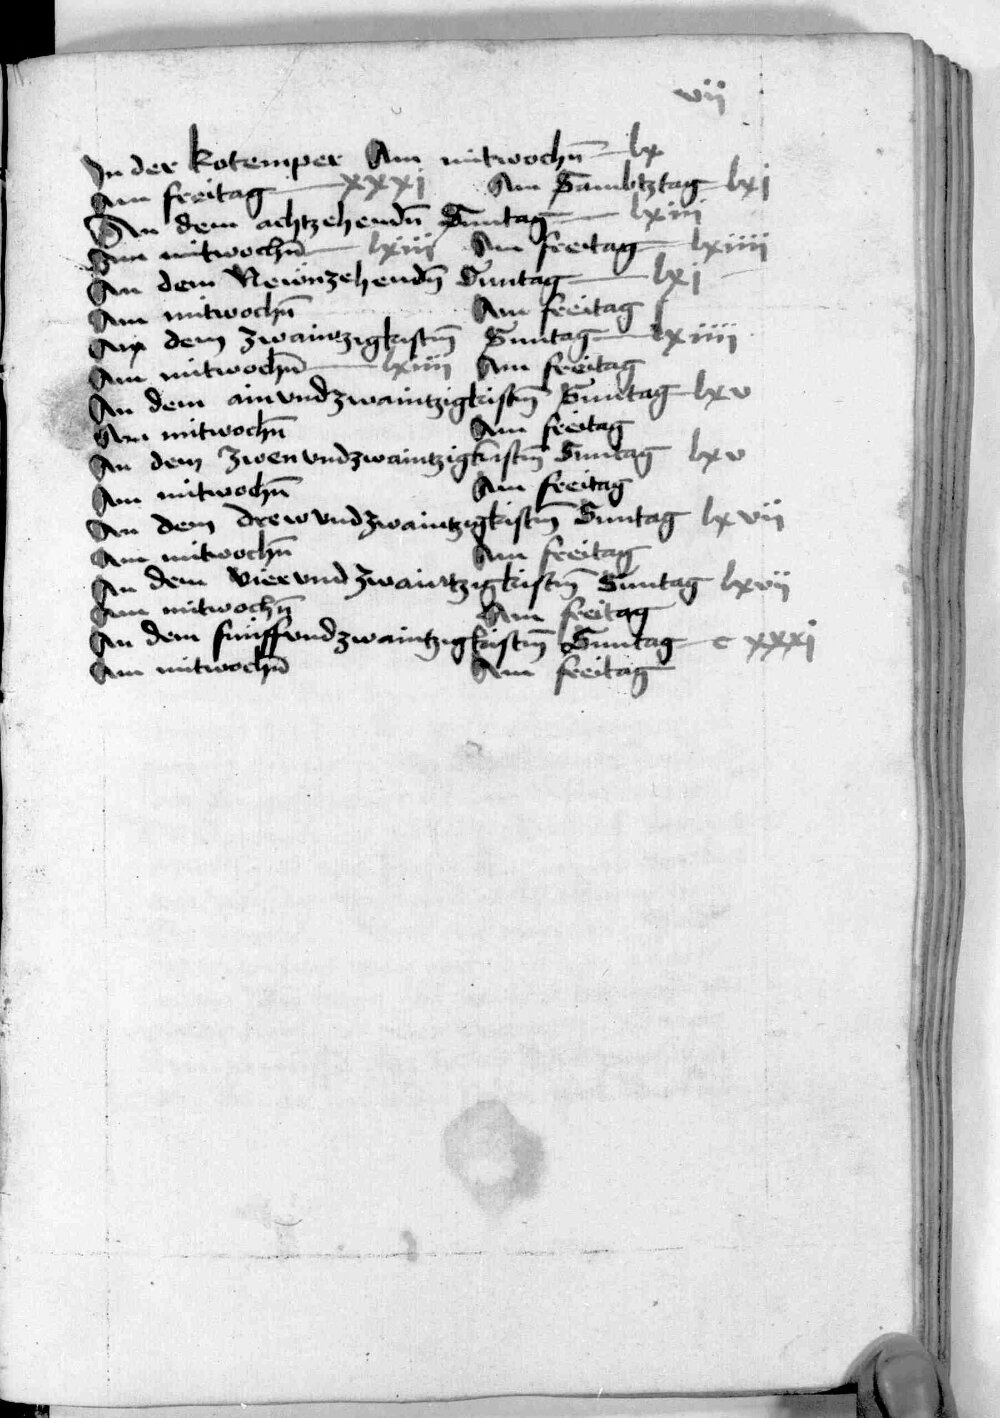 vij
In der kotemper Am mitwochn̄ lx
Am freitag xxxj Am Sambtztag lxj
An dem achtzehendn̄ Suntag lxiij
Am mitwochn̄ lxiij Am freitag lxiiij
An dem Newnzehendn̄ Suntag lxj
Am mitwochn̄ Am freitag
An dem zwaintzigkistn̄ Suntag lxiiij
Am mitwochn̄ lxiiij Am freitag
An dem ainvndzwaintzigkistn̄ Suntag lxv
Am mitwochn̄ Am freitag
An dem zwenvndzwaintzigkistn̄ Suntag lxv
Am mitwochn̄ Am freitag
An dem drewvndzwaintzigkistn̄ Suntag lxvij
Am mitwochn̄ Am freitag
An dem viervndzwaintzigkistn̄ Suntag lxvij
Am mitwochn̄ Am freitag
An dem funffvndzwaintzigkistn̄ Suntag c xxxj
Am mitwochn̄ Am freitag